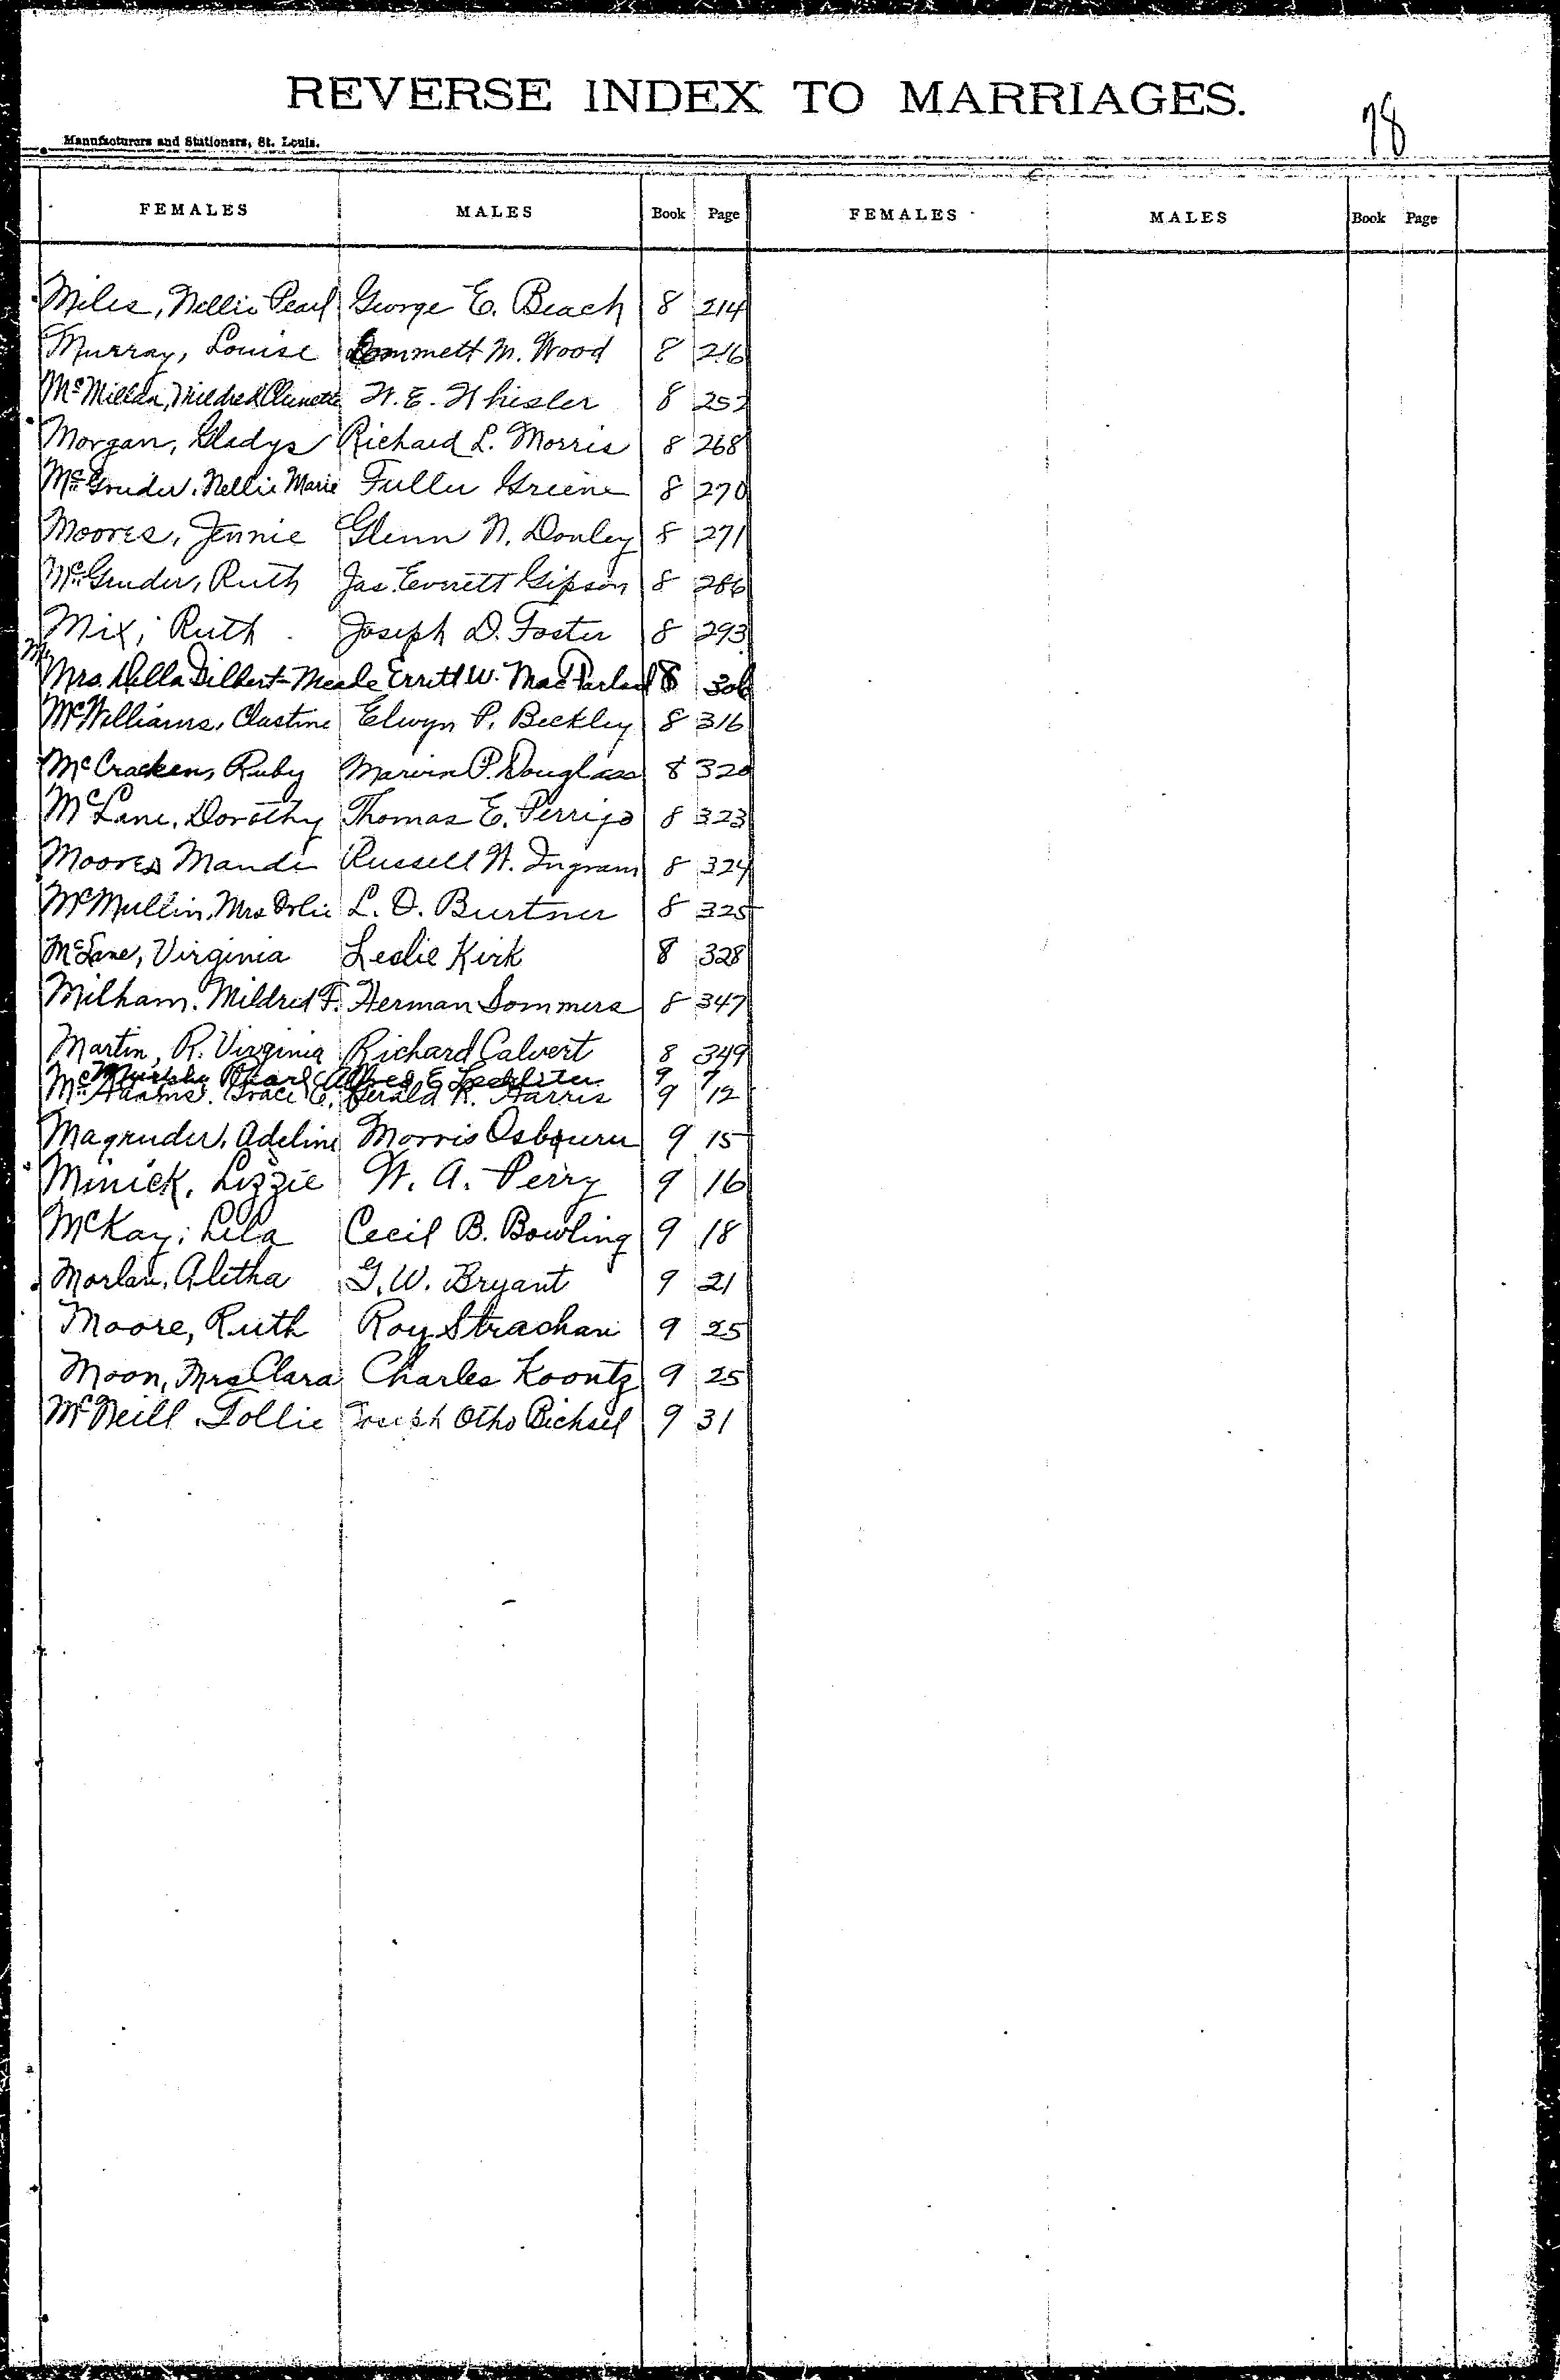 REVERSE INDEX TO MARRIAGES.
78
Manufacturers and Stationers, St. Louis.
FEMALES MALES Book Page FEMALES MALES Book Page
Miles, Nellie Pearl George E. Beach 8 214
Murray, Louise Emmett M. Wood 8 216
McMillan, Mildred W. E. Whisler 8 252
Morgan, Gladys Richard L. Morris 8 268
McGruder, Nellie Marie Fuller Greene 8 270
Moores, Jennie Glenn N. Donley 8 271
McGruder, Ruth Jas. Everett Gipson 8 286
Mix, Ruth Joseph D. Foster 8 293
Mrs. Della Dilbert-Meade Erritt W. MacParland 8 306
McWilliams, Clastine Elwyn P. Beckley 8 316
McCracken, Ruby Marvin P. Douglass 8 320
McLane, Dorothy Thomas E. Perrigo 8 323
Moores Maude Russell W. Ingram 8 324
McMullin, Mrs L. O. Burtner 8 325
McLane, Virginia Leslie Kirk 8 328
Milham, Mildred F. Herman Sommers 8 347
Martin, R. Virginia Richard Calvert 8 349
Murphy Pearl Alfred E. Lechliter 9 7
McAdams, Grace E. Gerald R. Harris 9 12
Magruder, Adeline Morris Osbourn 9 15
Minick, Lizzie W. A. Perry 9 16
McKay, Lela Cecil B. Bowling 9 18
Morlan, Aletha G. W. Bryant 9 21
Moore, Ruth Roy Strachan 9 25
Moon, Mrs Clara Charles Koontz 9 25
McNeill, Tollie Joseph Otho Bichsel 9 31